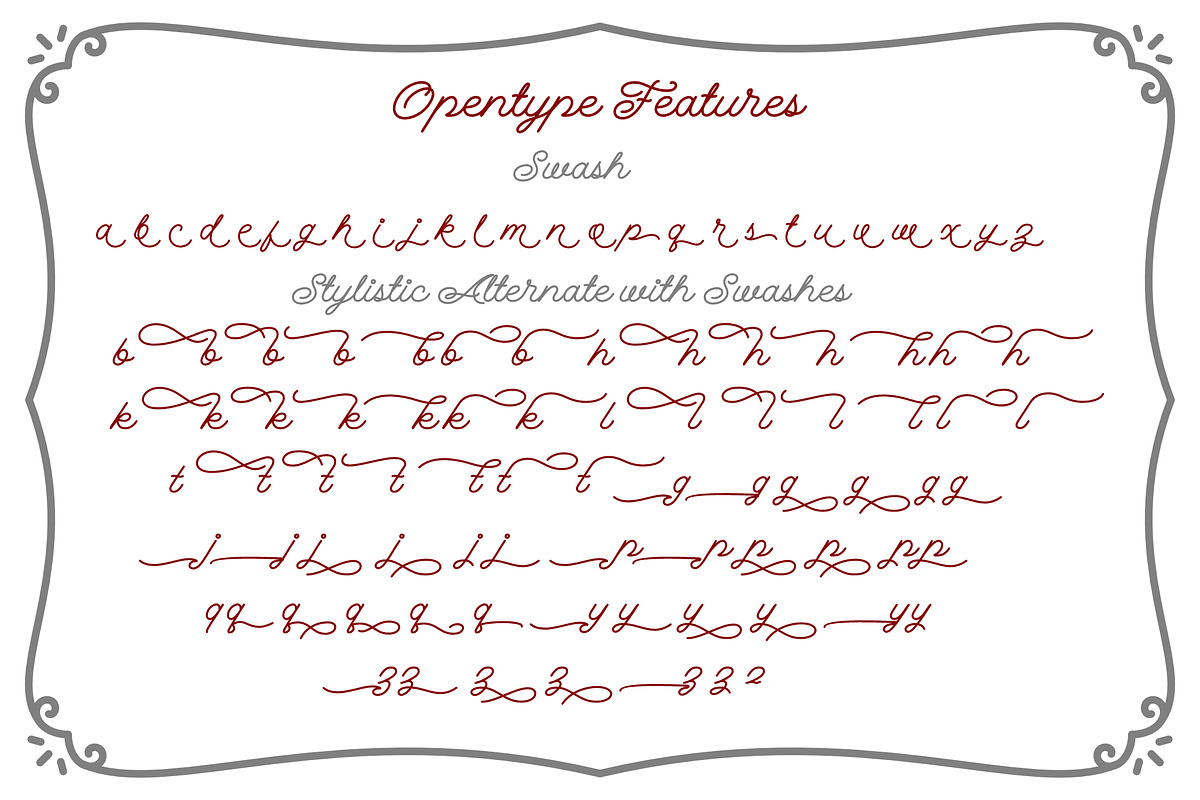 Opentype Features
Swash
a b c d e f g h i j k l m n o p q r s t u v w x y z
Stylistic Alternate with Swashes
b b b b b b b h h h h h h h
k k k k k k k l l l l l l l
t t t t t t t g g g g g g
j j j j j j p p p p p p
q q q q q q y y y y y y
z z z z z z z